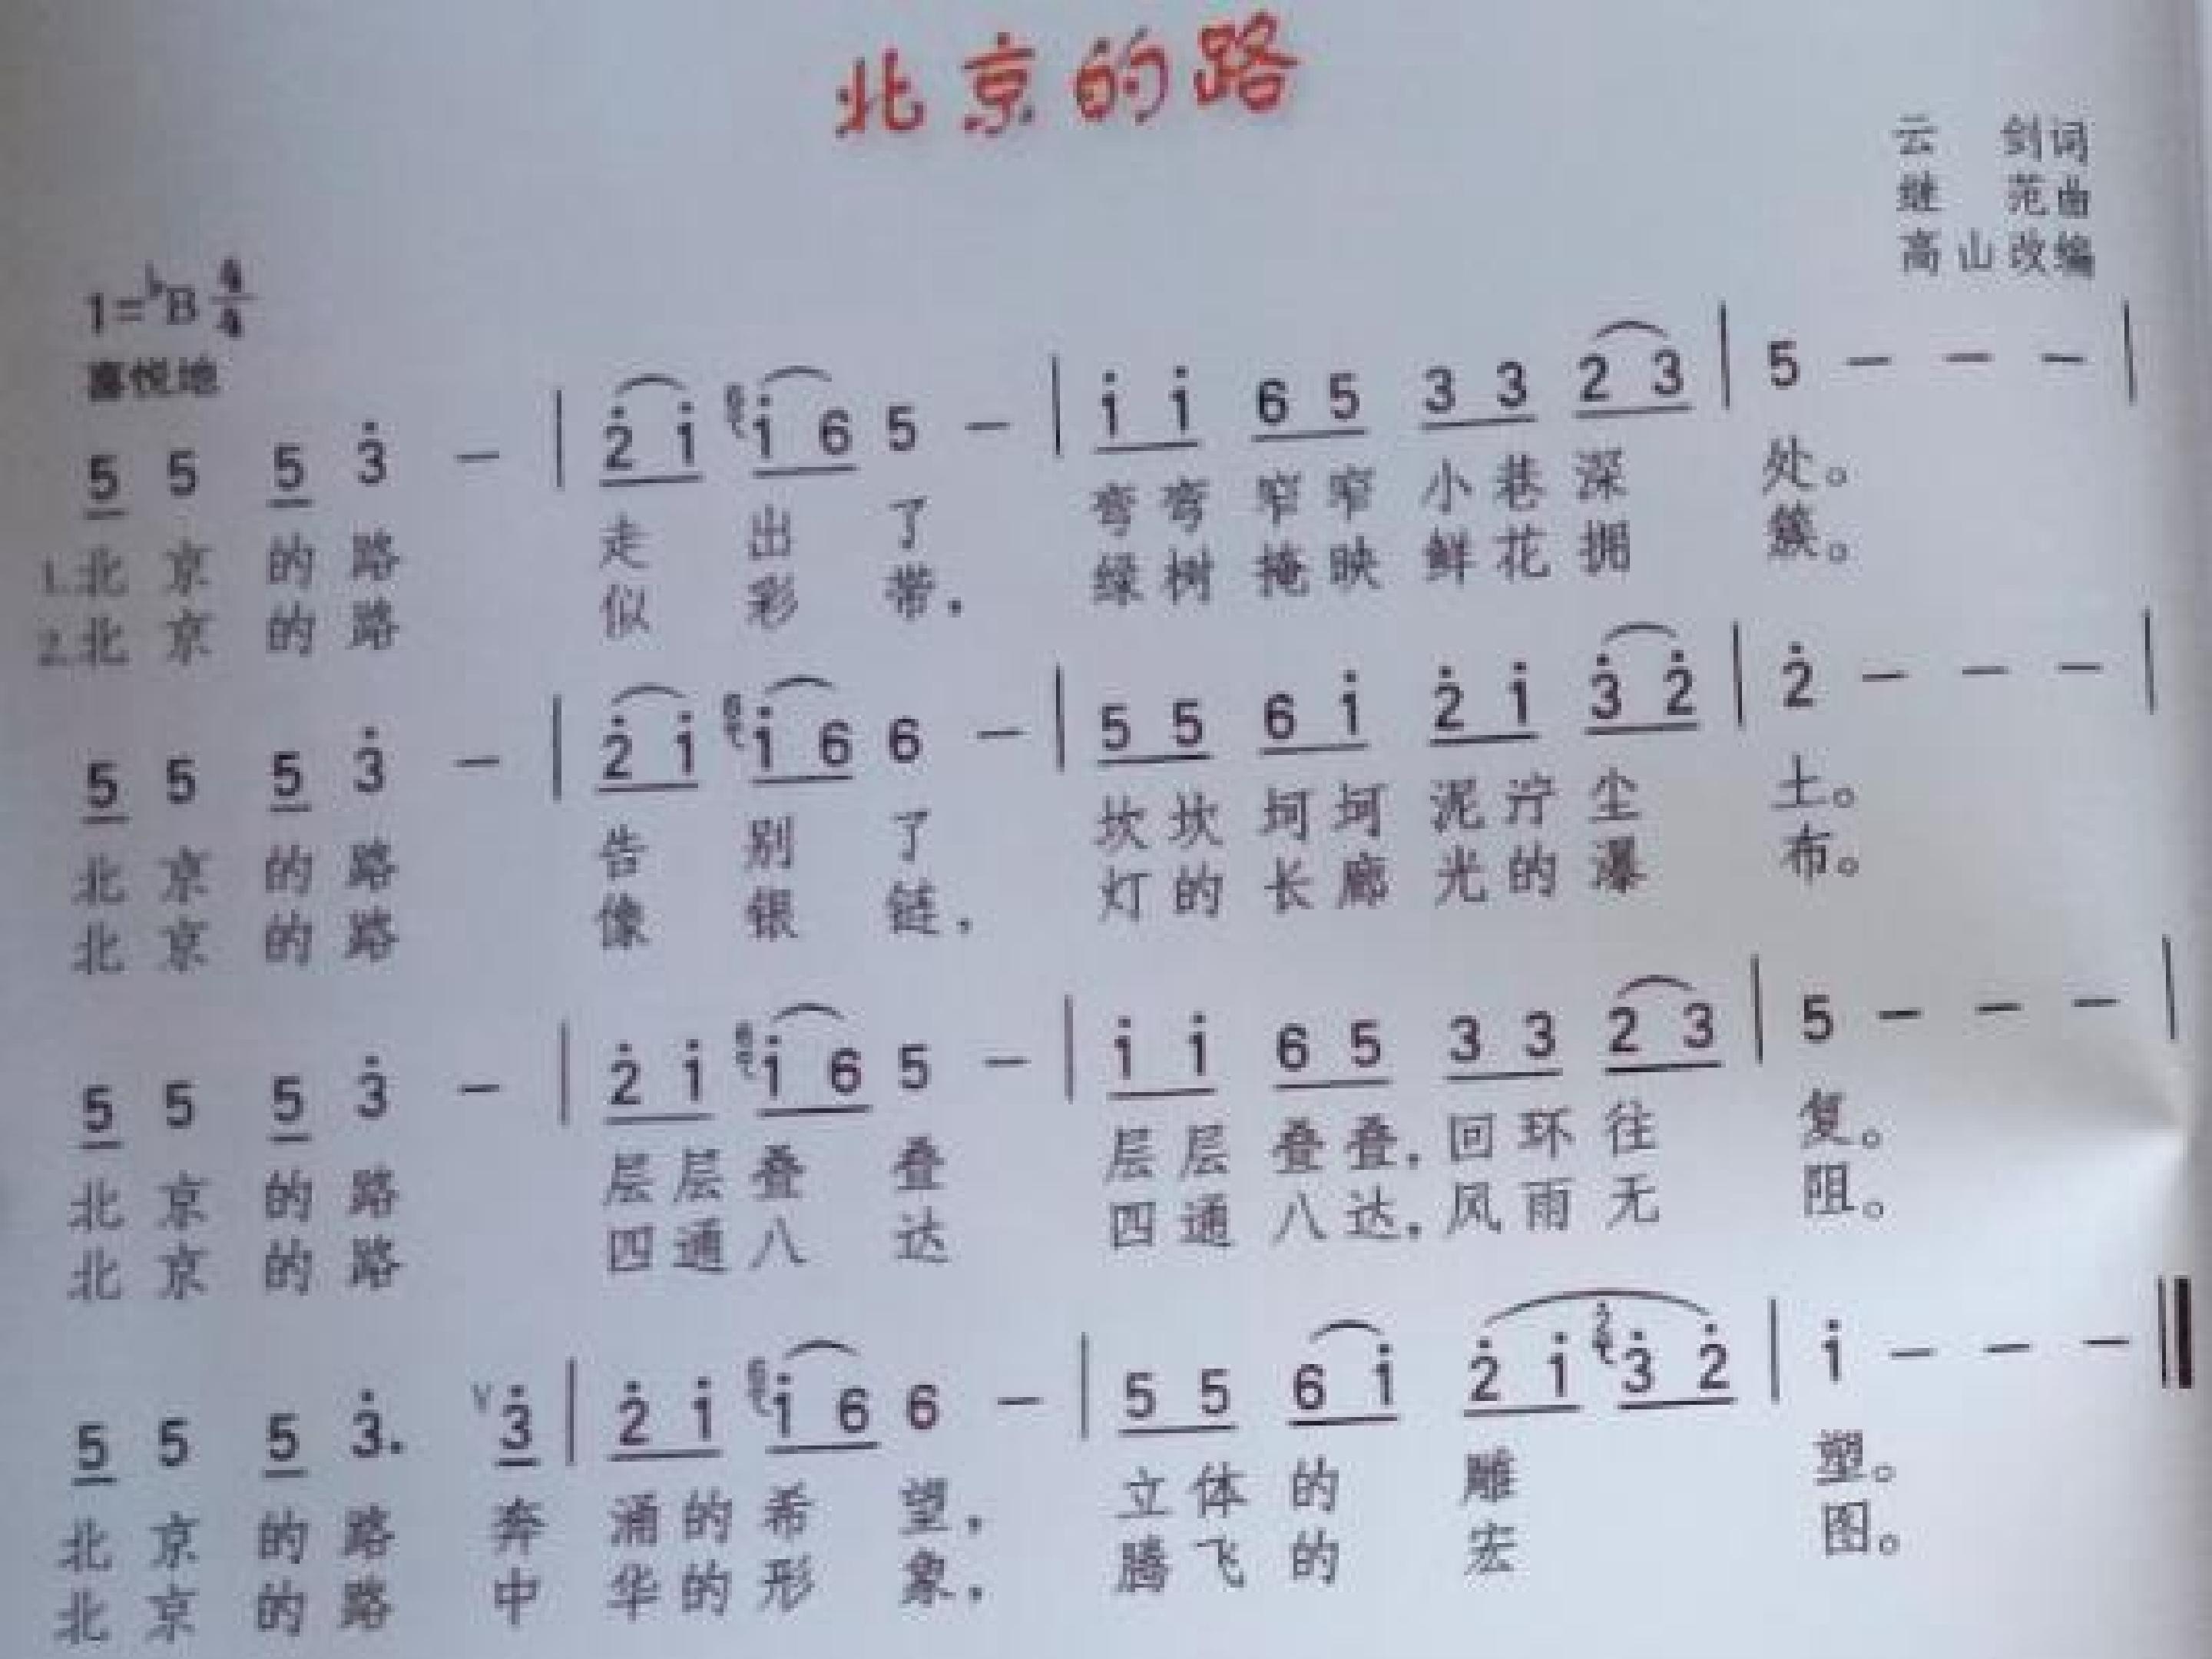 北京的路
云 剑词
继 范曲
高山改编
1=♭B 4/4
喜悦地
5 5 5 3̇ — | 2̇ 1̇ 1̇ 6 5 — | 1̇ 1̇ 6 5 3 3 2 3 | 5 — — — |
1.北 京 的 路 走 出 了 弯 弯 窄 窄 小 巷 深 处。
2.北 京 的 路 似 彩 带， 绿 树 掩 映 鲜 花 拥 簇。
5 5 5 3̇ — | 2̇ 1̇ 1̇ 6 6 — | 5 5 6 1̇ 2̇ 1̇ 3̇ 2̇ | 2̇ — — — |
北 京 的 路 告 别 了 坎 坎 坷 坷 泥 泞 尘 土。
北 京 的 路 像 银 链， 灯 的 长 廊 光 的 瀑 布。
5 5 5 3̇ — | 2̇ 1̇ 1̇ 6 5 — | 1̇ 1̇ 6 5 3 3 2 3 | 5 — — — |
北 京 的 路 层 层 叠 叠 层 层 叠 叠，回 环 往 复。
北 京 的 路 四 通 八 达 四 通 八 达，风 雨 无 阻。
5 5 5 3̇. V 3̇ | 2̇ 1̇ 1̇ 6 6 — | 5 5 6 1̇ 2̇ 1̇ 3̇ 2̇ | 1̇ — — — ‖
北 京 的 路 奔 涌 的 希 望， 立 体 的 雕 塑。
北 京 的 路 中 华 的 形 象， 腾 飞 的 宏 图。